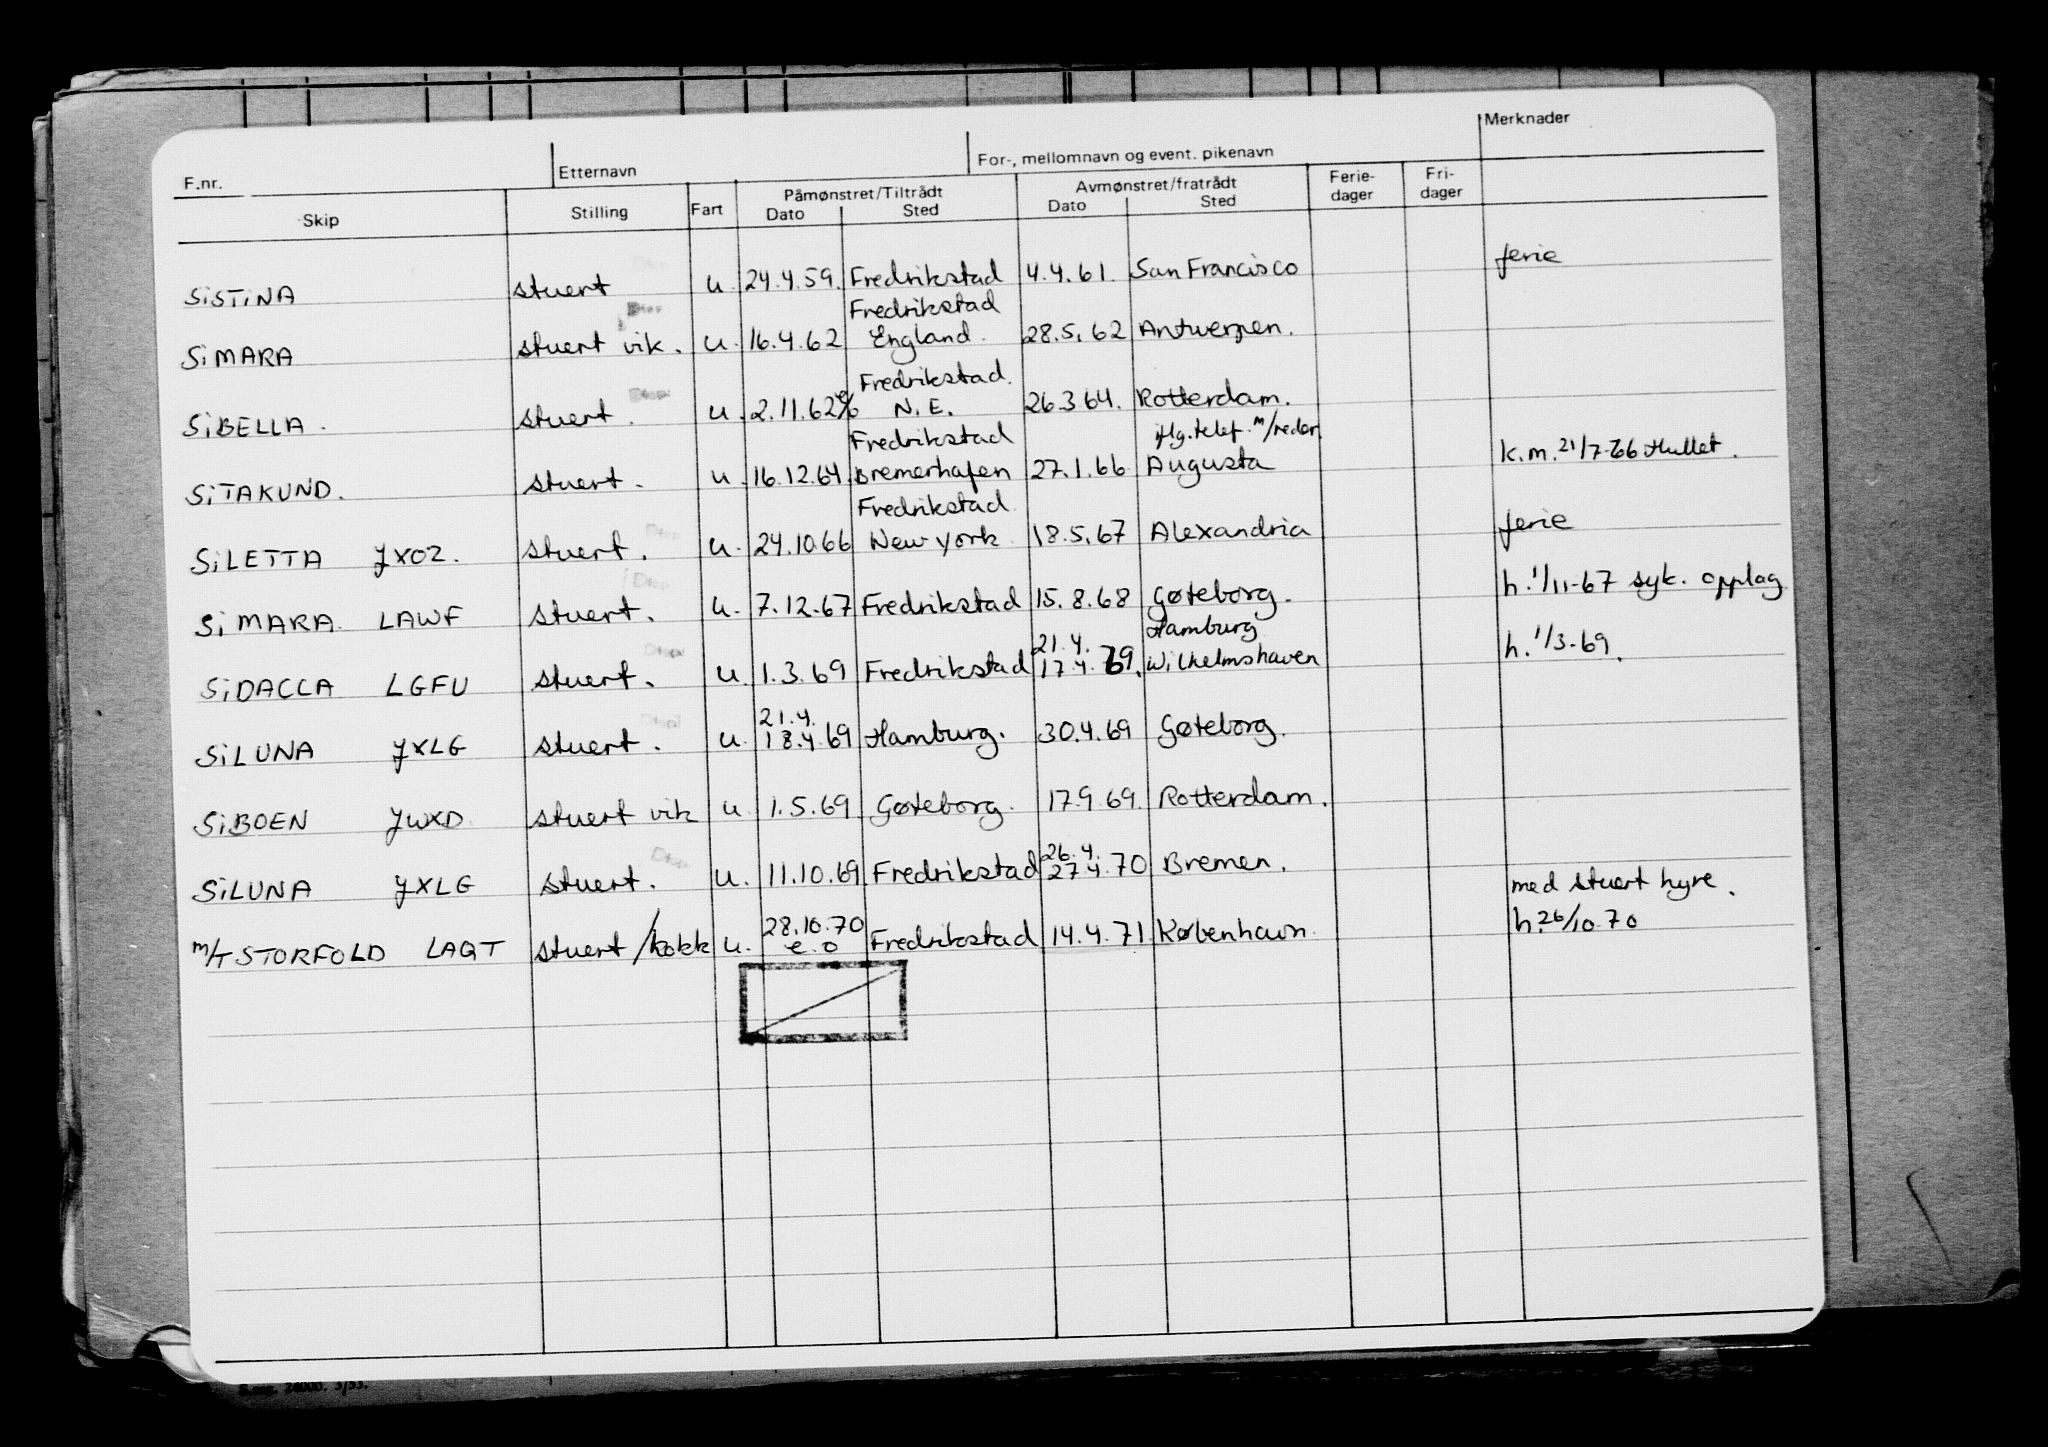 F.nr. Etternavn For-, mellomnavn og event. pikenavn Merknader
Skip Stilling Fart Påmønstret/Tiltrådt Dato Sted Avmønstret/fratrådt Dato Sted Ferie-dager Fri-dager
SiSTiNA stuert u. 24.4.59. Fredrikstad 4.4.61. San Francisco ferie
Fredrikstad
SiMARA stuert vik. u. 16.4.62 England. 28.5.62 Antwerpen.
Fredrikstad.
SiBELLA. stuert. u. 2.11.62 N.E. 26.3 64. Rotterdam.
Fredrikstad iflg. telef. m/reder
SiTAKUND. stuert. u. 16.12.64 Bremerhafen 27.1.66 Augusta k.m. 21/7-66 Hullet.
Fredrikstad.
SiLETTA JXOZ. stuert. u. 24.10.66 New York 18.5.67 Alexandria ferie
SiMARA. LAWF stuert. u. 7.12.67 Fredrikstad 15.8.68 Gøteborg. h. 1/11-67 syk. opplag
21.4. Hamburg
SiDACCA LGFU stuert. u. 1.3.69 Fredrikstad 17.4.69. Wilhelmshaven h. 1/3-69.
21.4.
SiLUNA JXLG stuert. u. 18.4.69 Hamburg. 30.4.69 Gøteborg.
SiBOEN JWXD stuert vik u. 1.5.69 Gøteborg. 17.9.69. Rotterdam.
26.4.
SiLUNA JXLG stuert. u. 11.10.69 Fredrikstad 27.4.70 Bremen.
28.10.70 med stuert hyre.
m/T STORFOLD LAQT stuert/kokk u. e.o Fredrikstad 14.4.71 København. h. 26/10.70
24000. 3/53.